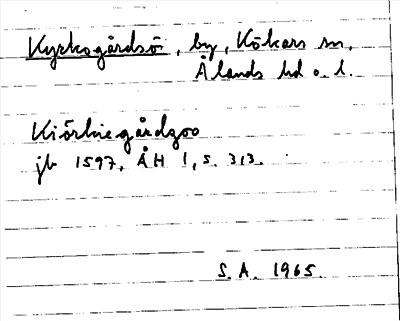 Kyrkogårdsö, by, Kökars sn,
Ålands hd o. l.
Kiörkiegårdzoo
jb 1597, ÅH 1, s. 313.
S.A. 1965.